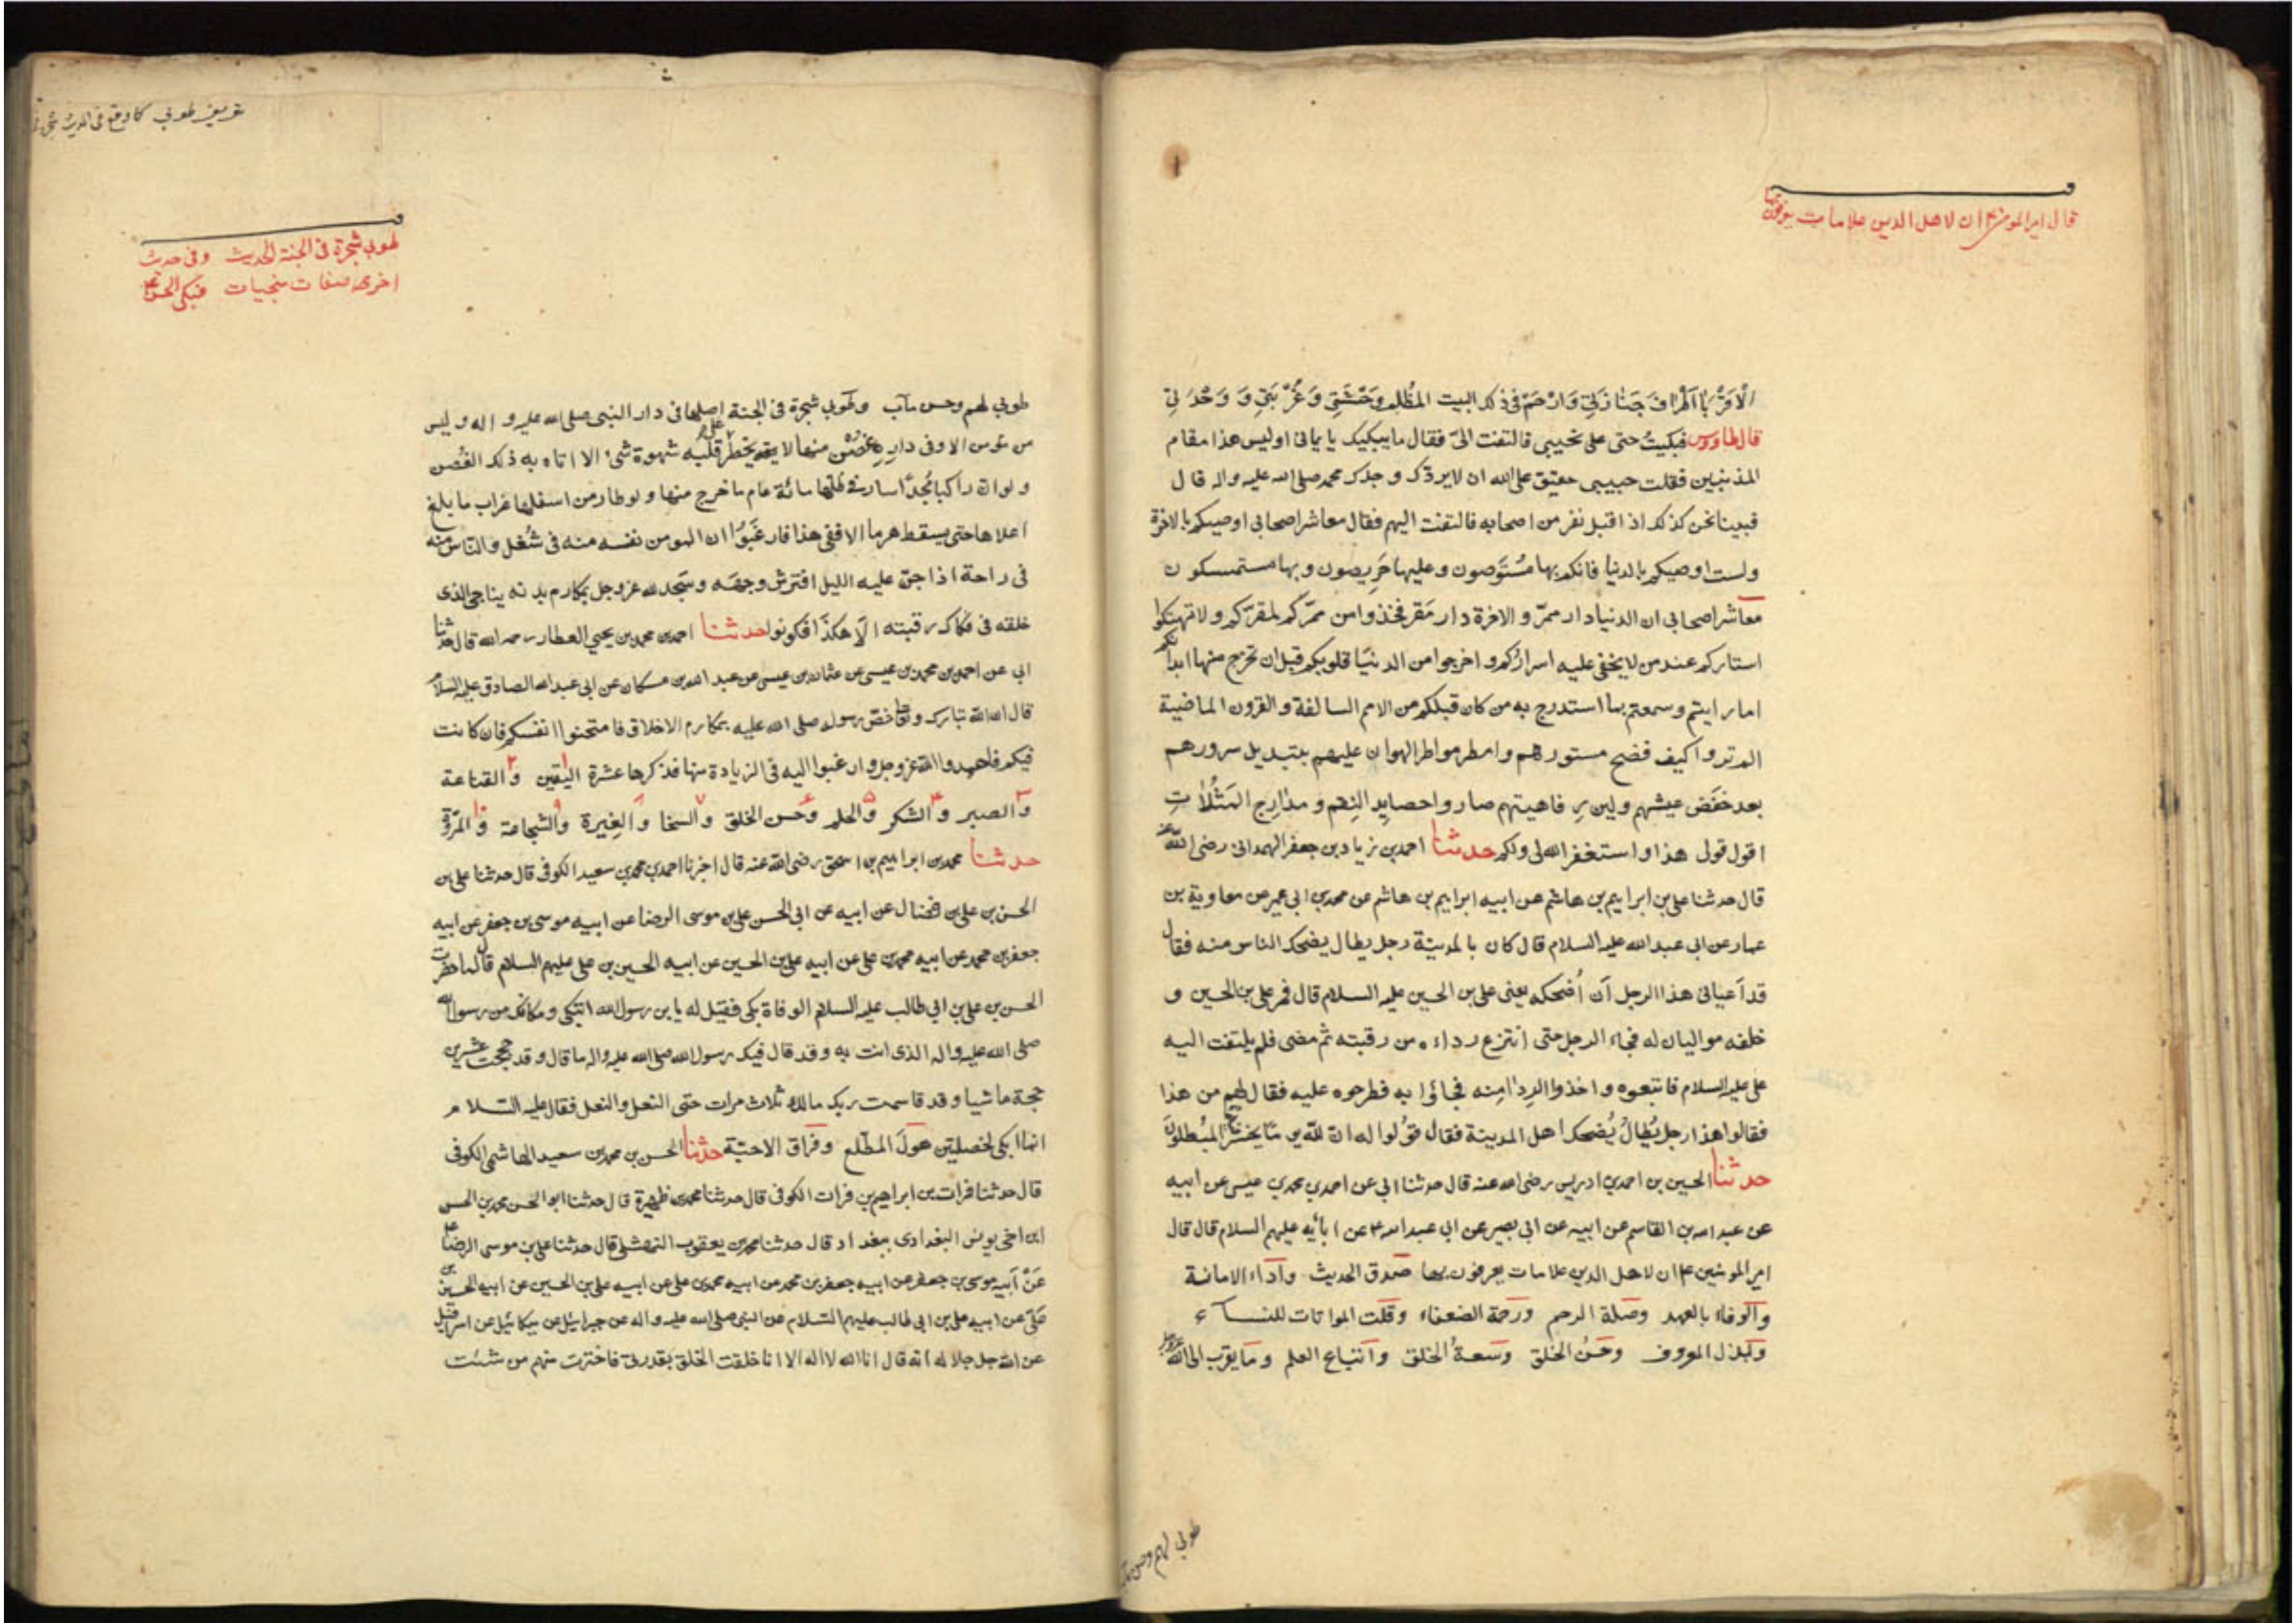 قال امير المومنين ان لاهل الدين علامات يعرفون بها
الاقرباء اطراف جنازتي وارحم في ذلك البيت المظلم وحشتي وغربتي و وحدتي
قال طاووس فبكيت حتى على نحيبي فالتفت الىّ فقال ما يبكيك يا يماني اوليس هذا مقام
المذنبين فقلت حبيبي حقيق على الله ان لا يردّك وجدك محمد صلى الله عليه واله قال
فبينا نحن كذلك اذ اقبل نفر من اصحابه فالتفت اليهم فقال معاشر اصحابي اوصيكم بالاخرة
ولست اوصيكم بالدنيا فانكم بها مُستَوصون وعليها حَرِيصون وبها مستمسكون
معاشر اصحابي ان الدنيا دار ممرّ والاخرة دار مَقر فخذوا من ممرّكم لمقرّكم ولا تهتكوا
استاركم عند من لا يخفى عليه اسراركم واخرجوا من الدنيا قلوبكم قبل ان تخرج منها ابدانكم
اما رايتم وسمعتم بما استدرج به من كان قبلكم من الامم السالفة والقرون الماضية
الم تروا كيف فضح مستورهم وامطر مواطر الهوان عليهم بتبديل سرورهم
بعد خفض عيشهم ولين رفاهيتهم صاروا حصايد النِقم ومدارج المَثُلات
اقول قولي هذا واستغفر الله لي ولكم حدثنا احمد بن زياد بن جعفر الهمداني رضي الله عنه
قال حدثنا علي بن ابراهيم بن هاشم عن ابيه ابراهيم بن هاشم عن محمد بن ابي عمير عن معاوية بن
عمار عن ابي عبد الله عليه السلام قال كان بالمدينة رجل بطال يضحك الناس منه فقال
قد أعياني هذا الرجل أن أُضحكه يعني علي بن الحسين عليه السلام قال فمر علي بن الحسين و
خلفه موليان له فجاء الرجل حتى انتزع رداءه من رقبته ثم مضى فلم يلتفت اليه
علي عليه السلام فاتبعوه واخذوا الردا منه فجاؤا به فطرحوه عليه فقال لهم من هذا
فقالوا هذا رجل بُطال يُضحك اهل المدينة فقال قولوا له ان لله يوما يخسر فيه المبطلون
حدثنا الحسين بن احمد بن ادريس رضي الله عنه قال حدثنا ابي عن احمد بن محمد بن عيسى عن ابيه
عن عبد الله بن القاسم عن ابيه عن ابي بصير عن ابي عبد الله ع عن ابائه عليهم السلام قال قال
امير المومنين ع ان لاهل الدين علامات يعرفون بها صدق الحديث واداء الامانة
والوفاء بالعهد وصلة الرحم ورحمة الضعفاء وقلت المواتات للنساء
وبذل المعروف وحسن الخلق وسعة الخلق واتباع العلم وما يقرب الى الله عز وجل
طوبي لهم وحسن مآب
تعريف طوبي كما وقع في الحديث
طوبي شجرة في الجنة الحديث وفي حدث
اخرى صفات منجيات فبكى الحسن
طوبي لهم وحسن مآب وطوبي شجرة في الجنة اصلها في دار النبي صلى الله عليه واله وليس
من مؤمن الا وفي داره غصن منها لا يخطر على قلبه شهوة شئ الا اتاه به ذلك الغُصن
ولو ان راكبا مُجدا سار في ظلها مائة عام ما خرج منها ولو طار من اسفلها غراب ما بلغ
اعلاها حتى يسقط هرما الا ففي هذا فارغبوا ان المومن نفسه منه في شُغل والناس منه
في راحة اذا جن عليه الليل افترش وجهه وسجد لله عز وجل بمكارم بدنه يناجي الذي
خلقه في فكاك رقبته الا هكذا فكونوا حدثنا احمد بن محمد بن يحيى العطار رحمه الله قال حدثنا
ابي عن احمد بن محمد بن عيسى عن عثمان بن عيسى عن عبد الله بن مسكان عن ابي عبد الله الصادق عليه السلام
قال ان الله تبارك وتعالى خصّ رسوله صلى الله عليه بمكارم الاخلاق فامتحنوا انفسكم فان كانت
فيكم فاحمدوا الله عز وجل وارغبوا اليه في الزيادة منها فذكرها عشرة اليقين والقناعة
والصبر والشكر والحلم وحسن الخلق والسخا والغيرة والشجاعة والمرّوة
حدثنا محمد بن ابراهيم بن اسحق رضي الله عنه قال اخبرنا احمد بن محمد بن سعيد الكوفي قال حدثنا علي بن
الحسن بن علي بن فضال عن ابيه عن ابي الحسن علي بن موسى الرضا عن ابيه موسى بن جعفر عن ابيه
جعفر بن محمد عن ابيه محمد بن علي عن ابيه علي بن الحسين عن ابيه الحسين بن علي عليهم السلام قال لما حضرت
الحسن بن علي بن ابي طالب عليه السلام الوفاة بكى فقيل له يا بن رسول الله اتبكي ومكانك من رسول الله
صلى الله عليه واله الذي انت به وقد قال فيك رسول الله صلى الله عليه واله ما قال وقد حججت عشرين
حجة ماشيا وقد قاسمت ربك مالك ثلاث مرات حتى النعل والنعل فقال عليه السلام
انما ابكي لخصلتين هول المطّلع وفراق الاحبّة حدثنا الحسن بن محمد بن سعيد الهاشمي الكوفي
قال حدثنا فرات بن ابراهيم بن فرات الكوفي قال حدثنا محمد بن ظهيرة قال حدثنا ابو الحسن محمد بن الحسن
ابن اخي يونس البغدادي ببغداد قال حدثنا محمد بن يعقوب النهشلي قال حدثنا علي بن موسى الرضا ع
عن ابيه موسى بن جعفر عن ابيه جعفر بن محمد عن ابيه محمد بن علي عن ابيه علي بن الحسين عن ابيه الحسين بن
علي عن ابيه علي بن ابي طالب عليهم السلام عن النبي صلى الله عليه واله عن جبرائيل عن ميكائيل عن اسرافيل
عن الله جل جلاله انه قال انا الله لا اله الا انا خلقت الخلق بقدرتي فاخترت منهم من شئت